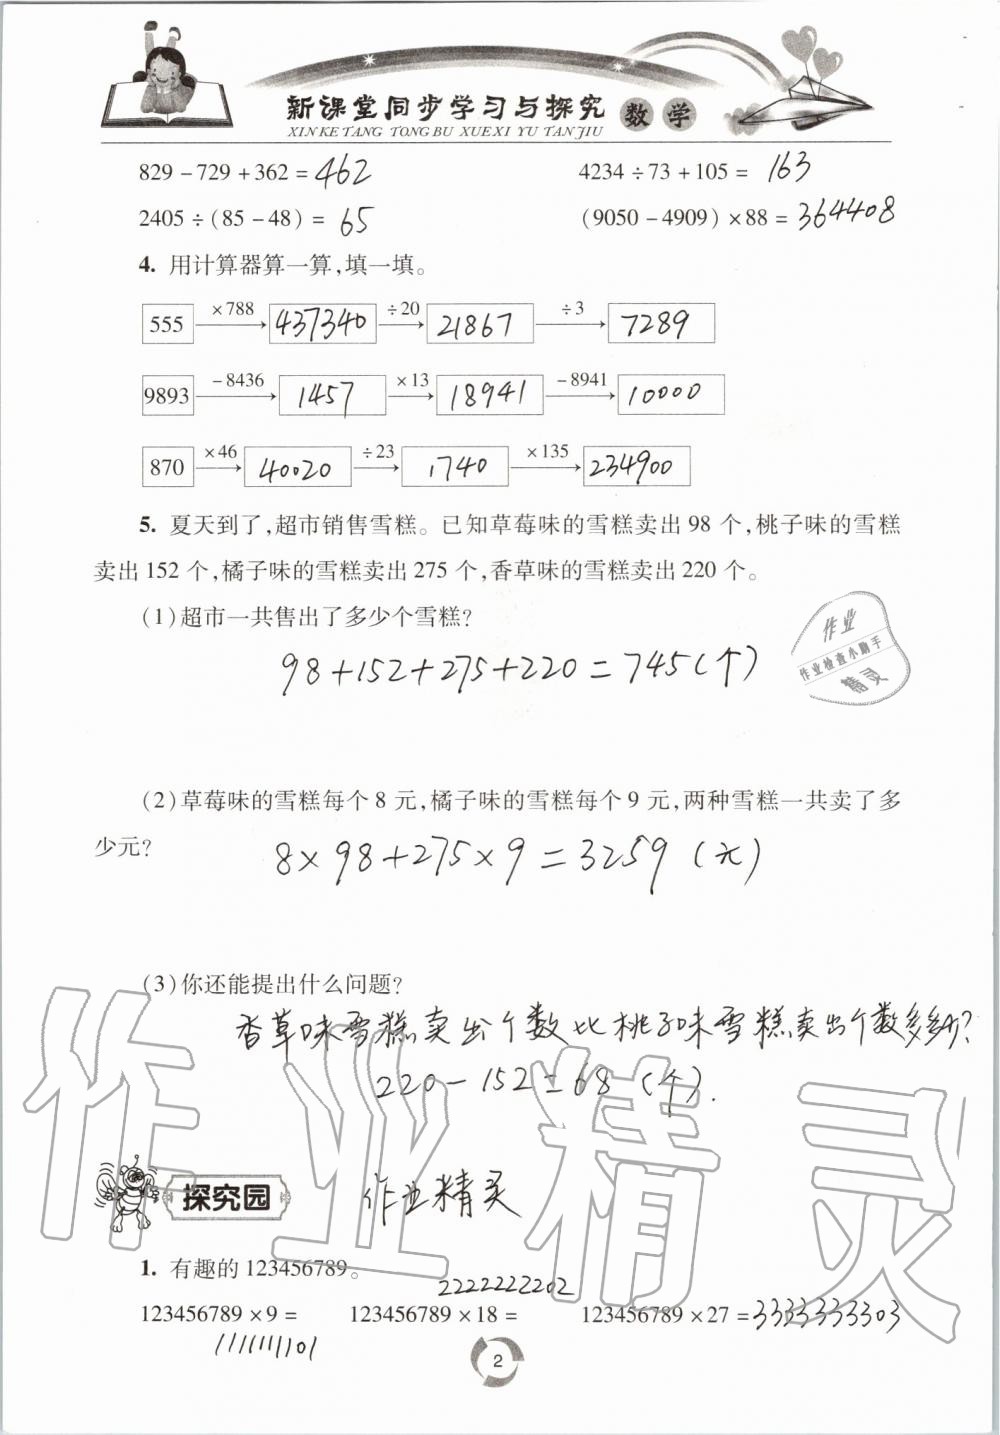 新课堂同步学习与探究 数学
XIN KE TANG TONG BU XUE XI YU TAN JIU
829－729＋362＝462
4234÷73＋105＝163
2405÷(85－48)＝65
(9050－4909)×88＝364408
4. 用计算器算一算,填一填。
555 ×788 437340 ÷20 21867 ÷3 7289
9893 －8436 1457 ×13 18941 －8941 10000
870 ×46 40020 ÷23 1740 ×135 234900
5. 夏天到了,超市销售雪糕。已知草莓味的雪糕卖出98个,桃子味的雪糕
卖出152个,橘子味的雪糕卖出275个,香草味的雪糕卖出220个。
(1)超市一共售出了多少个雪糕?
作业
作业检查小助手
精灵
98+152+275+220=745(个)
(2)草莓味的雪糕每个8元,橘子味的雪糕每个9元,两种雪糕一共卖了多
少元?
8×98+275×9=3259(元)
(3)你还能提出什么问题?
香草味雪糕卖出个数比桃子味雪糕卖出个数多多少?
220-152=68(个).
作业精灵
探究园
作业精灵
1. 有趣的123456789。
2222222202
123456789×9＝
123456789×18＝
123456789×27＝3333333303
1111111101
2